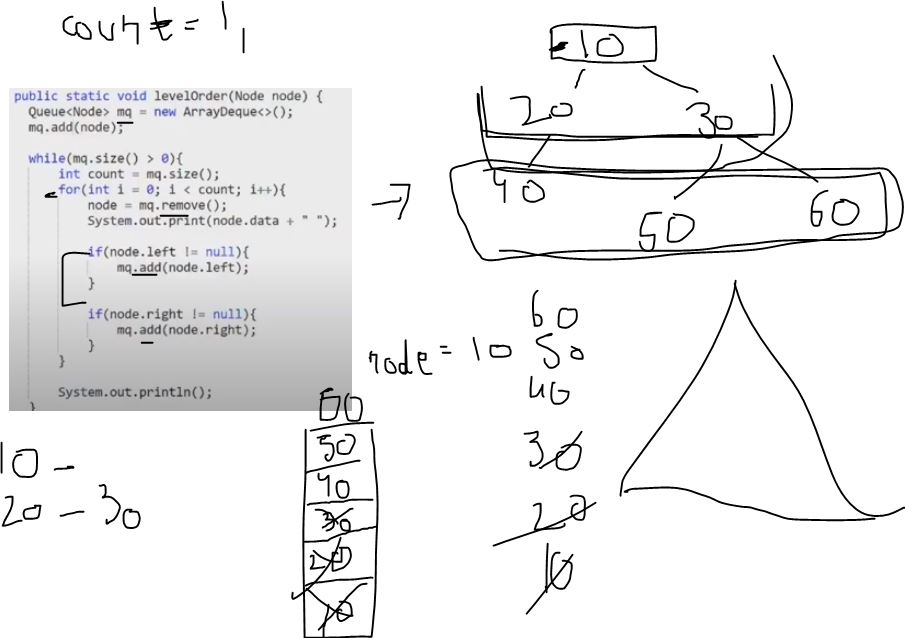 count = 1,
10
20 30
40 50 60
public static void levelOrder(Node node) {
Queue<Node> mq = new ArrayDeque<>();
mq.add(node);
while(mq.size() > 0){
int count = mq.size();
for(int i = 0; i < count; i++){
node = mq.remove();
System.out.print(node.data + " ");
if(node.left != null){
mq.add(node.left);
}
if(node.right != null){
mq.add(node.right);
}
}
System.out.println();
}
node = 10
60
50
40
30
20
10
60
50
40
30
20
10
10 -
20 - 30